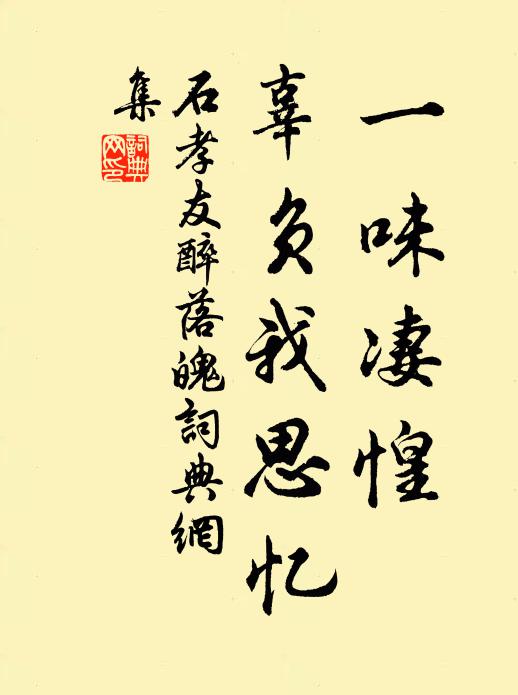 一味凄惶
辜负我思忆
石孝友醉落魄詞典網
集
詞典網印